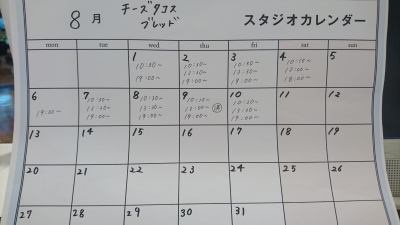 8月 チーズタコス
ブレッド
スタジオカレンダー
mon tue wed thu fri sat sun
1 2 3 4 5
10:30〜 10:30〜 10:30〜 10:30〜
19:00〜 13:30〜 13:30〜 13:00〜
19:00〜 19:00〜 18:00〜
6 7 8 9 10 11 12
19:00〜 10:30〜 10:30〜 10:30〜 10:30〜
13:30〜 13:30〜 13:30〜 満 13:30〜
19:00〜 19:00〜 19:00〜 19:00〜
13 14 15 16 17 18 19
20 21 22 23 24 25 26
27 28 29 30 31